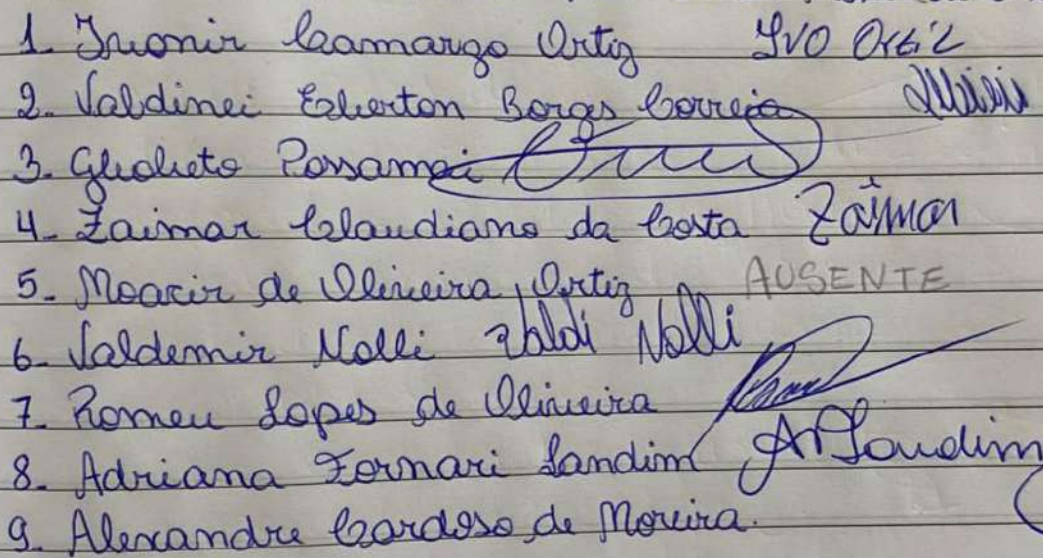 1. Ivonir Camargo Ortiz Ivo Ortiz
2. Valdinei Elierton Borges Correia
3. Possamai
4. Zaimar Claudiano da Costa Zaimar
5. Moacir de Oliveira Ortiz AUSENTE
6. Valdemir Nolli Valdi Nolli
7. Romeu Lopes de Oliveira
8. Adriana Fornari Landim Landim
9. Alexandre Cardoso de Moreira.